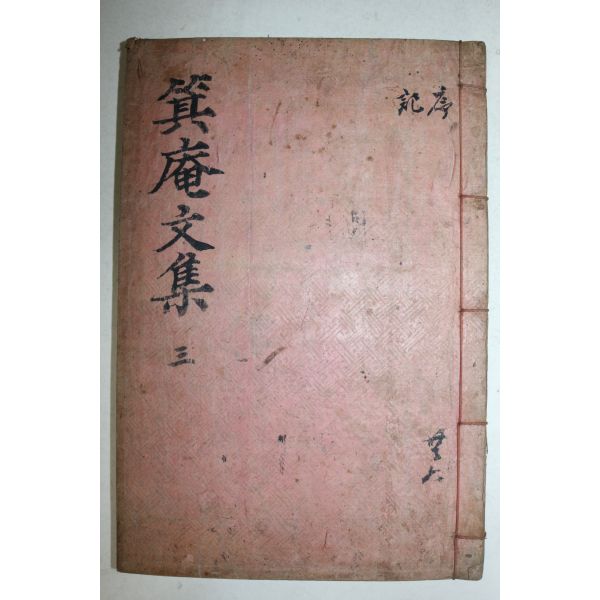 序
記
共六
箕庵文集 三